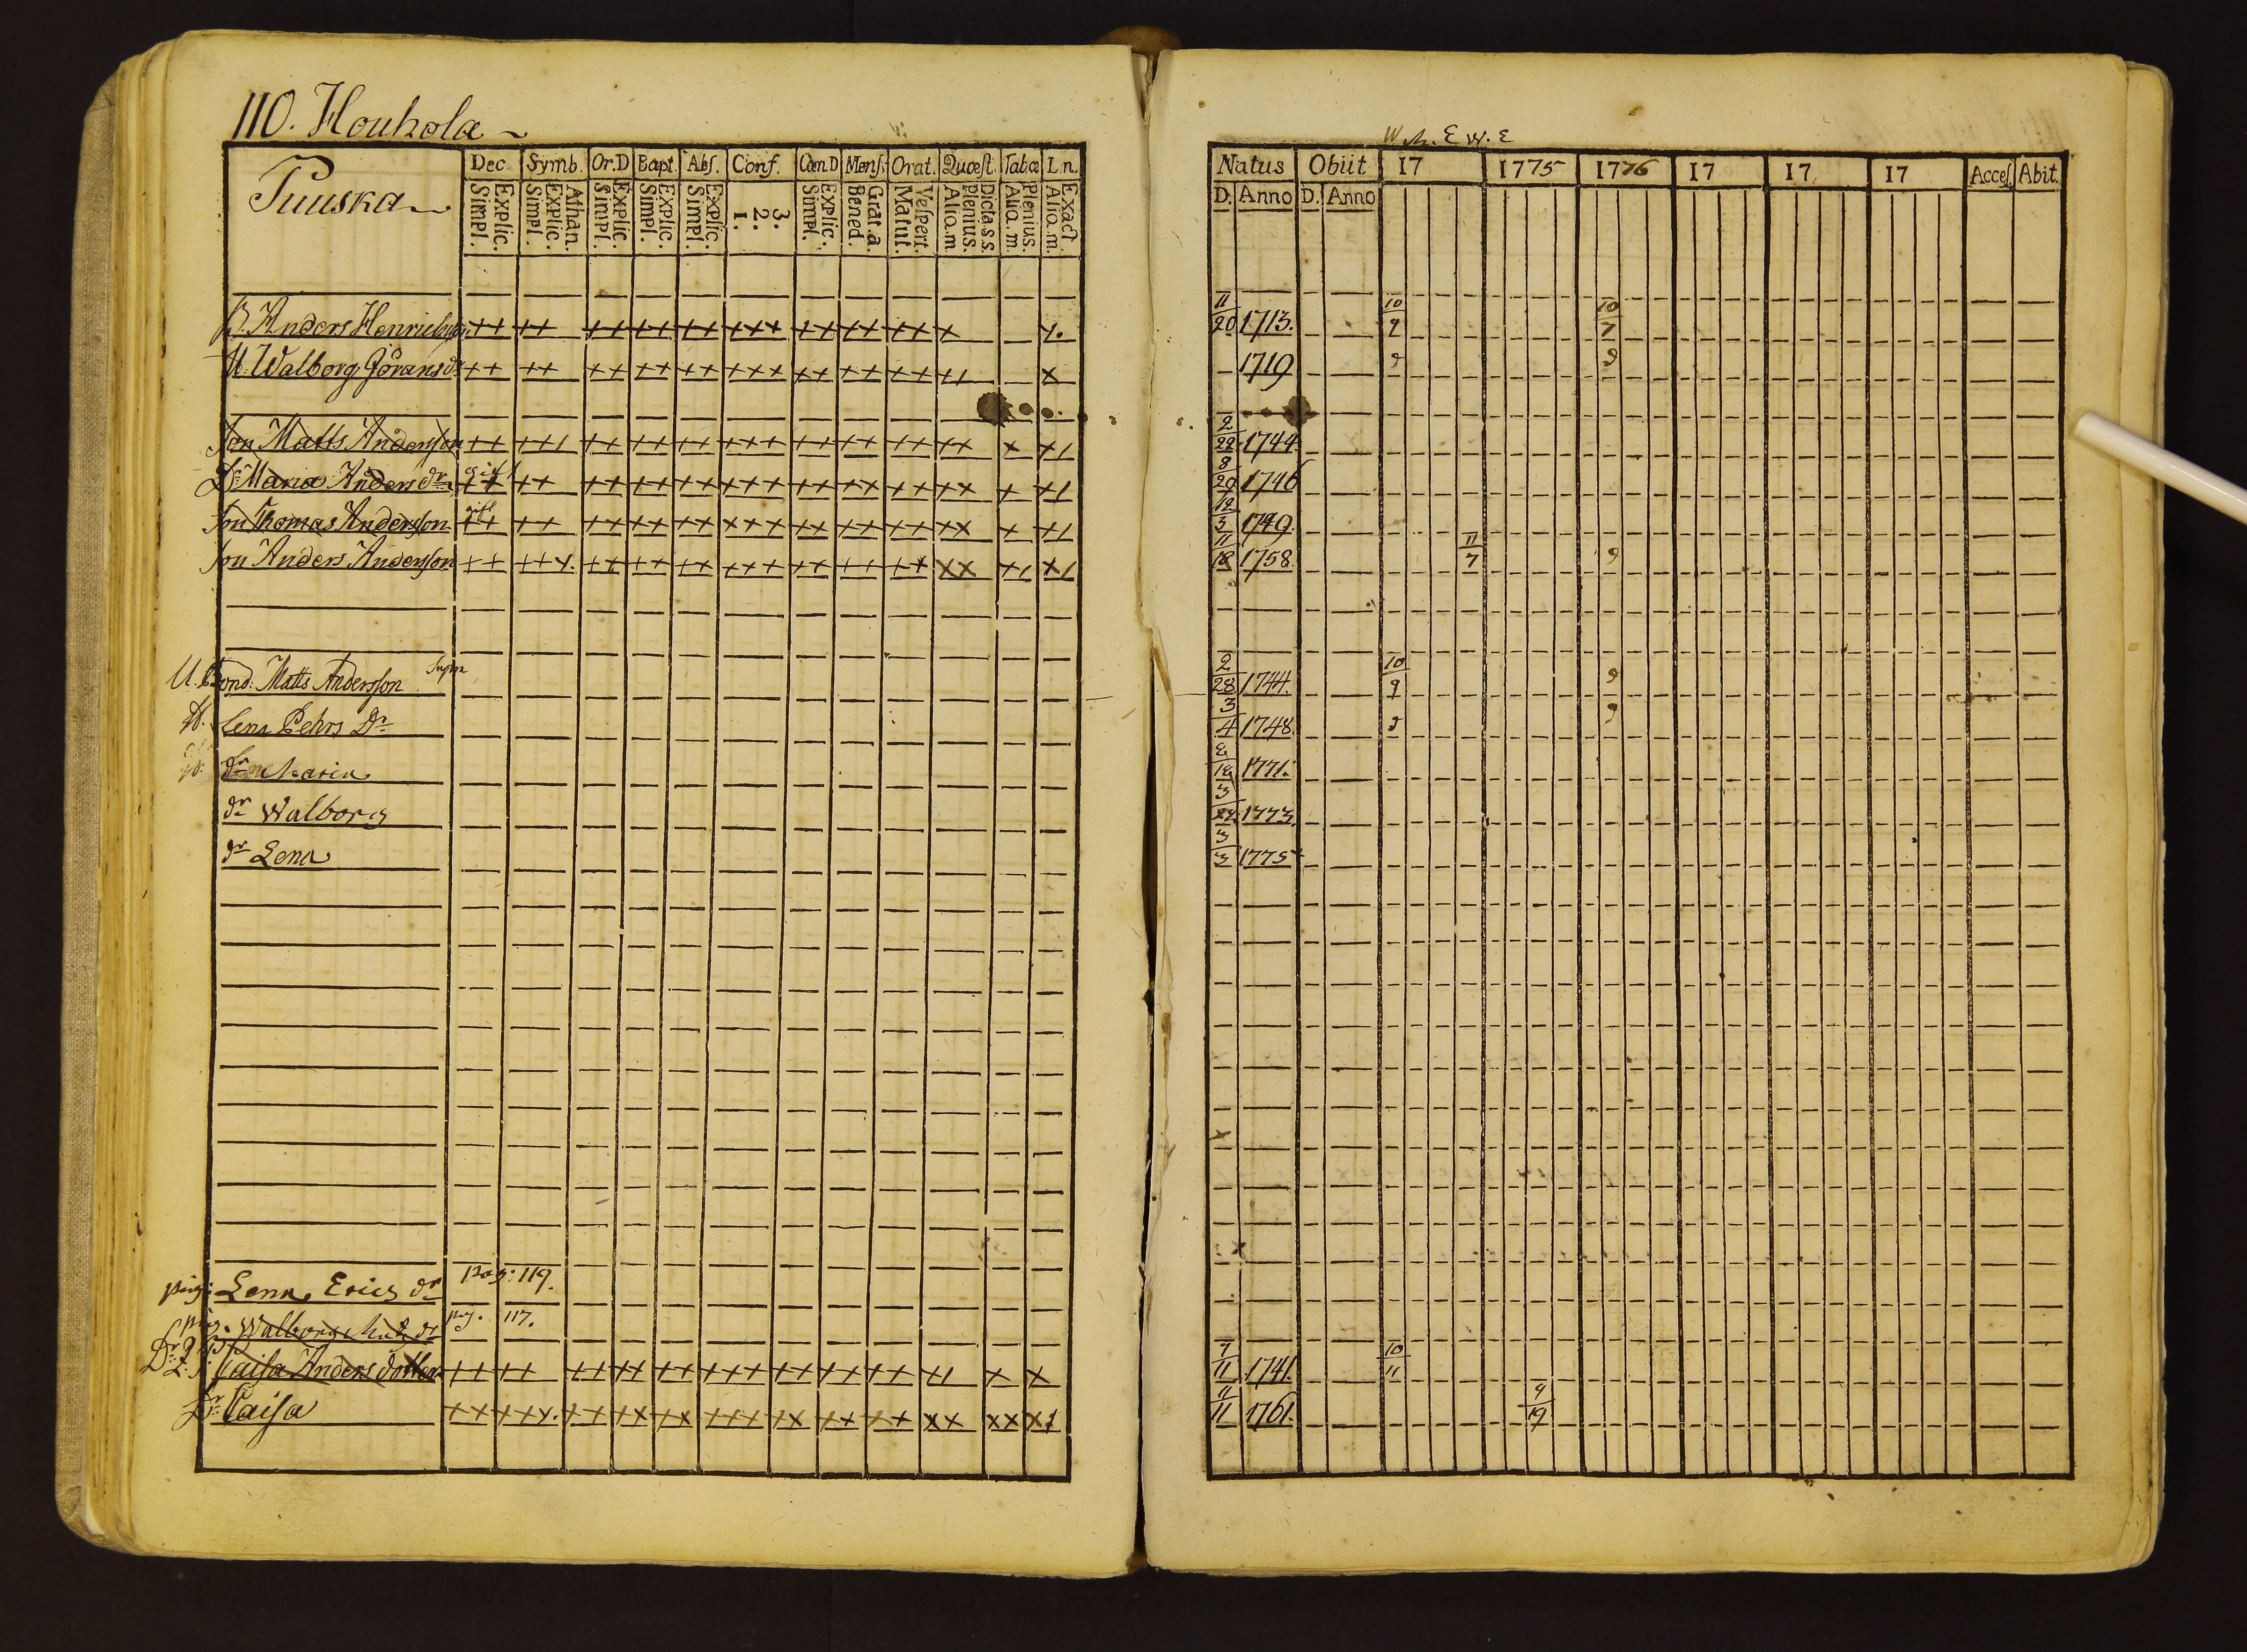 110. Houhola
Puuska
Dec. Symb. Or.D Bapt. Abs. Conf. Cœn D Mens. Orat. Quæst. Tabæ L.n.
Simpl. Explic. Simpl. Explic. Athan. Simpl. Explic. Simpl. Explic. Simpl. Explic. 1. 2. 3. Simpl. Explic. Bened. Grat. a. Matut. Vespert. Aliq. m. plenius. Dicta s.s. Aliq. m. Plenius. Aliq. m. Exact
B. Anders Henrichss. ++ ++ ++ ++ ++ +++ ++ ++ ++ +
U. Walborg Jörans dr ++ ++ ++ ++ ++ +++ ++ ++ ++ +
Son Matts Andersson ++ ++ ++ ++ ++ +++ ++ ++ ++ ++ +
Dr Maria Anders dr gift ++ ++ ++ ++ ++ +++ ++ ++ ++ ++ +
Son Thomas Andersson gift ++ ++ ++ ++ ++ +++ ++ ++ ++ ++ +
Son Anders Andersson ++ ++ ++ ++ ++ +++ ++ ++ ++ ++
Bond. Matts Andersson
Lena Pehrs Dr
dr Maria
dr Walborg
dr Lena
pig: Lena Erics dr pag: 119.
pig. Walborg Mats dr pag. 117.
Caisa Anders dotter ++ ++ ++ ++ ++ +++ ++ ++ ++ + +
Dr Caisa ++ ++ ++ ++ ++ +++ ++ ++ ++ ++ ++
Natus Obiit 17 1775 1776 17 17 17 Acces. Abit.
D. Anno D. Anno
11/20 1713. 10/9 10/7
1719
2/28 1744.
8/29 1746
12/3 1749.
11/18 1758. 11/7
2/28 1744. 10/9
3/4 1748.
1771.
3/22 1773.
3/3 1775
7/11 1741. 10/11
11/11 1761. 9/19